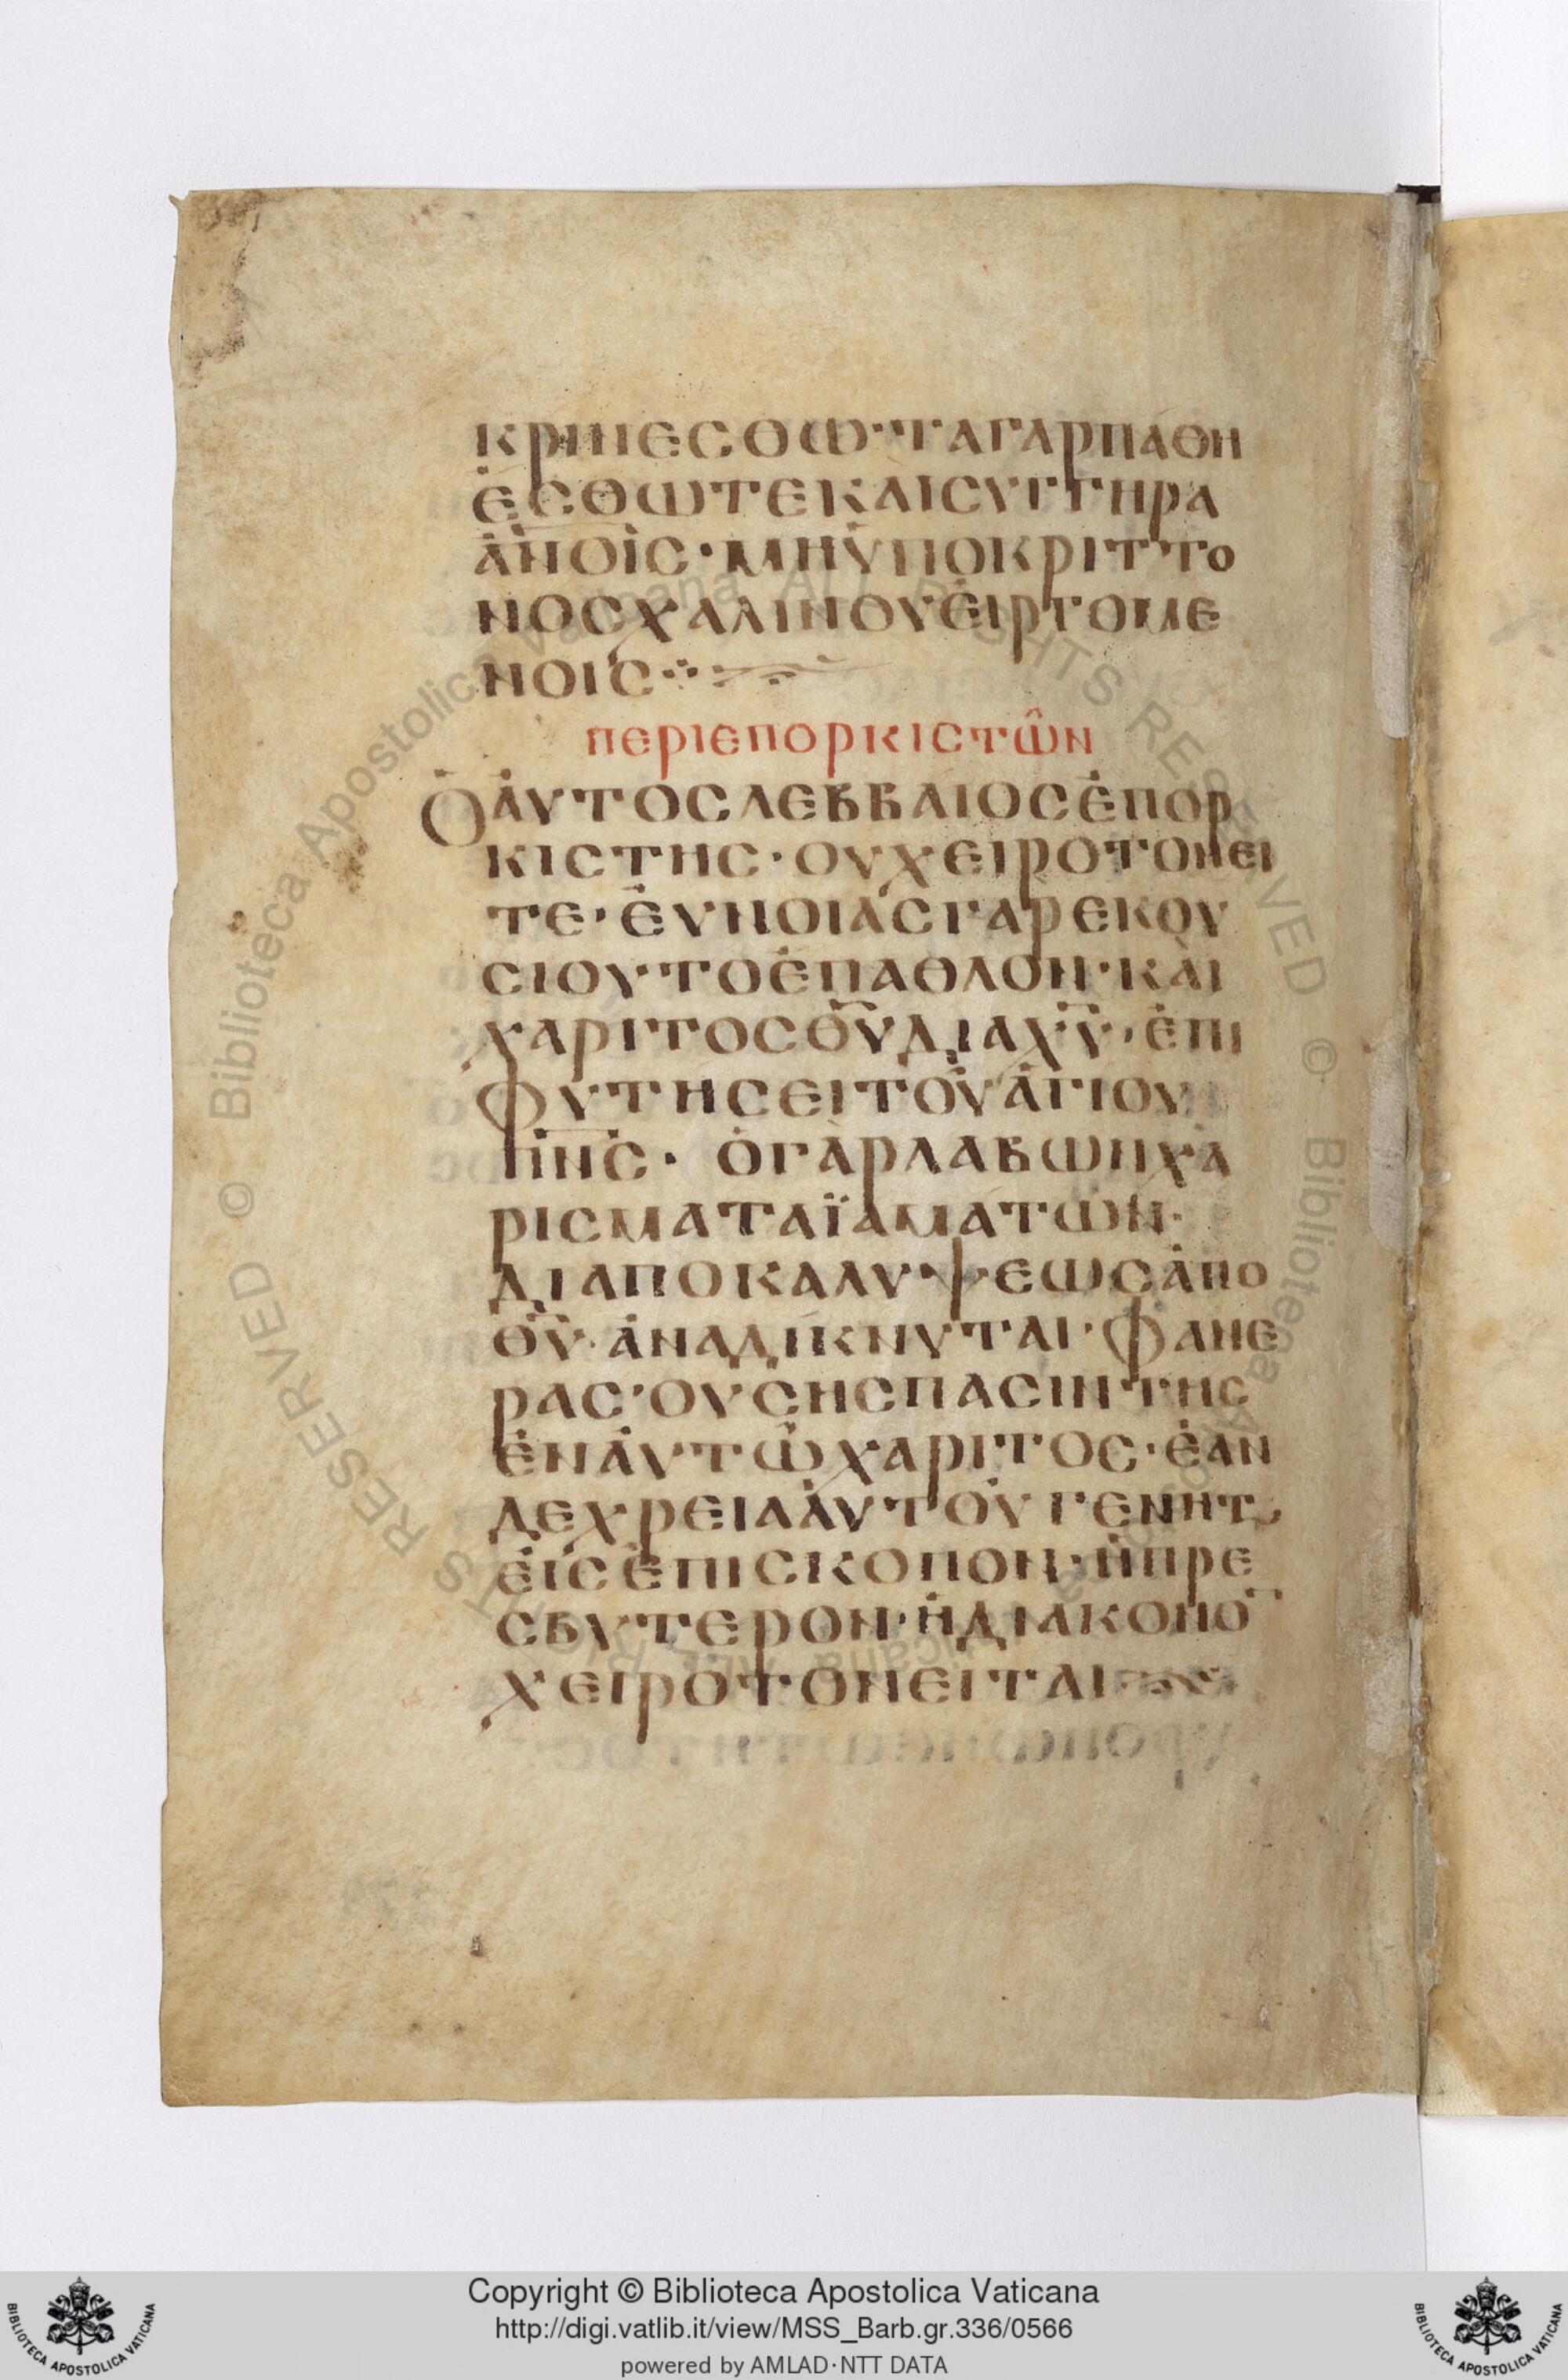 ΚΡΙΝΕϹΘΩ·ΤΑΓΑΡΠΑΘΗ
ΕϹΘΩΤΕΚΑΙϹΥΓΓΗΡΑ
ΑΝΟΙϹ·ΜΗΥΠΟΚΡΙΤΤΟ
ΝΟϹΧΑΛΙΝΟΥΕΙΡΓΟΜΕ
ΝΟΙϹ
ΠΕΡΙΕΠΟΡΚΙϹΤΩ͂Ν
ΟΑΥΤΟϹΛΕΒΒΑΙΟϹΕΠΟΡ
ΚΙϹΤΗϹ·ΟΥΧΕΙΡΟΤΟΝΕΙ
ΤΕ·ΕΥΝΟΙΑϹΓΑΡΕΚΟΥ
ϹΙΟΥΤΟΕΠΑΘΛΟΝ·ΚΑΙ
ΧΑΡΙΤΟϹΘ̅Υ̅ΔΙΑΧ̅Υ̅·ΕΠΙ
ΦΥΤΗϹΕΙΤΟΥΑΓΙΟΥ
Π̅Ν̅Ϲ̅· ΟΓΑΡΛΑΒΩΝΧΑ
ΡΙϹΜΑΤΑΪΑΜΑΤΩΝ·
ΔΙΑΠΟΚΑΛΥΨΕΩϹΑΠΟ
Θ̅Υ̅·ΑΝΑΔΙΚΝΥΤΑΙ·ΦΑΝΕ
ΡΑϹ·ΟΥϹΗϹΠΑϹΙΝΤΗϹ
ΕΝΑΥΤΩ͂ΧΑΡΙΤΟϹ·ΕΑΝ
ΔΕΧΡΕΙΑΑΥΤΟΥΓΕΝΗΤ
ΕΙϹΕΠΙϹΚΟΠΟΝ·ΗΠΡΕ
ϹΒΥΤΕΡΟΝ·ΗΔΙΑΚΟΝΟ̅
ΧΕΙΡΟΤΟΝΕΙΤΑΙ
Copyright © Biblioteca Apostolica Vaticana
http://digi.vatlib.it/view/MSS_Barb.gr.336/0566
powered by AMLAD·NTT DATA